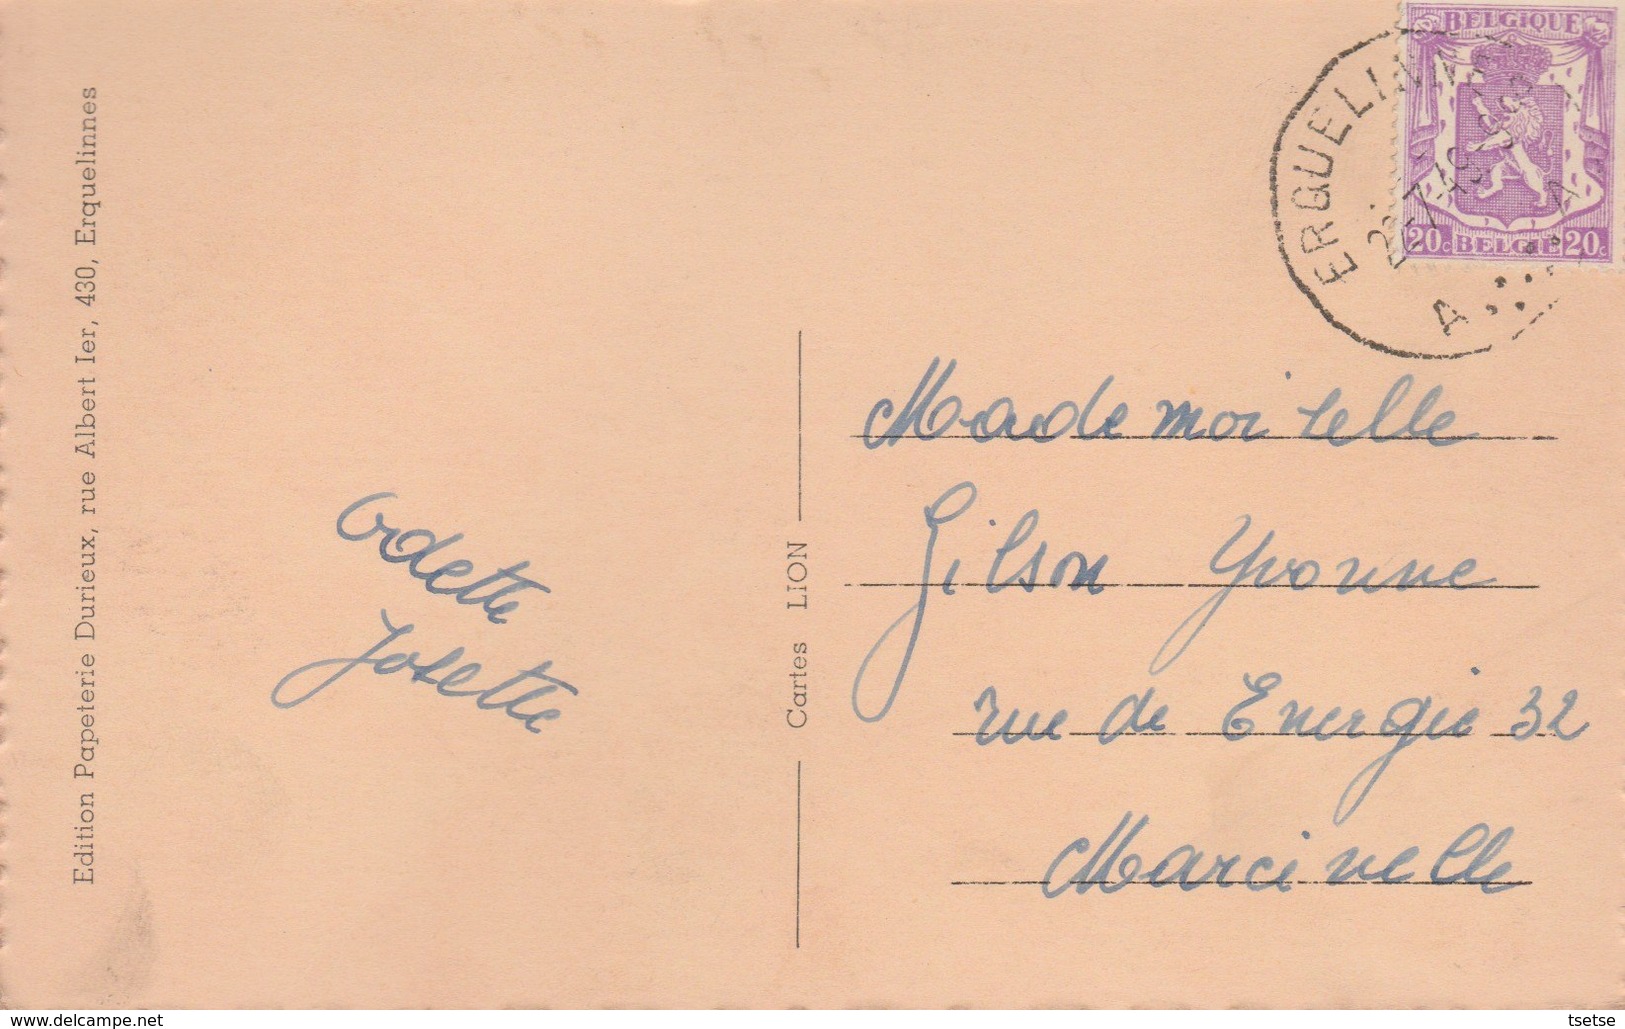 Edition Papeterie Durieux, rue Albert Ier, 430, Erquelinnes
Odette
Josette
Cartes LION
BELGIQUE
20c BELGIE 20c
ERQUELINNES
A A
Mademoiselle
Gilson Yvonne
rue de Energie 32
Marcinelle
www.delcampe.net
tsetse